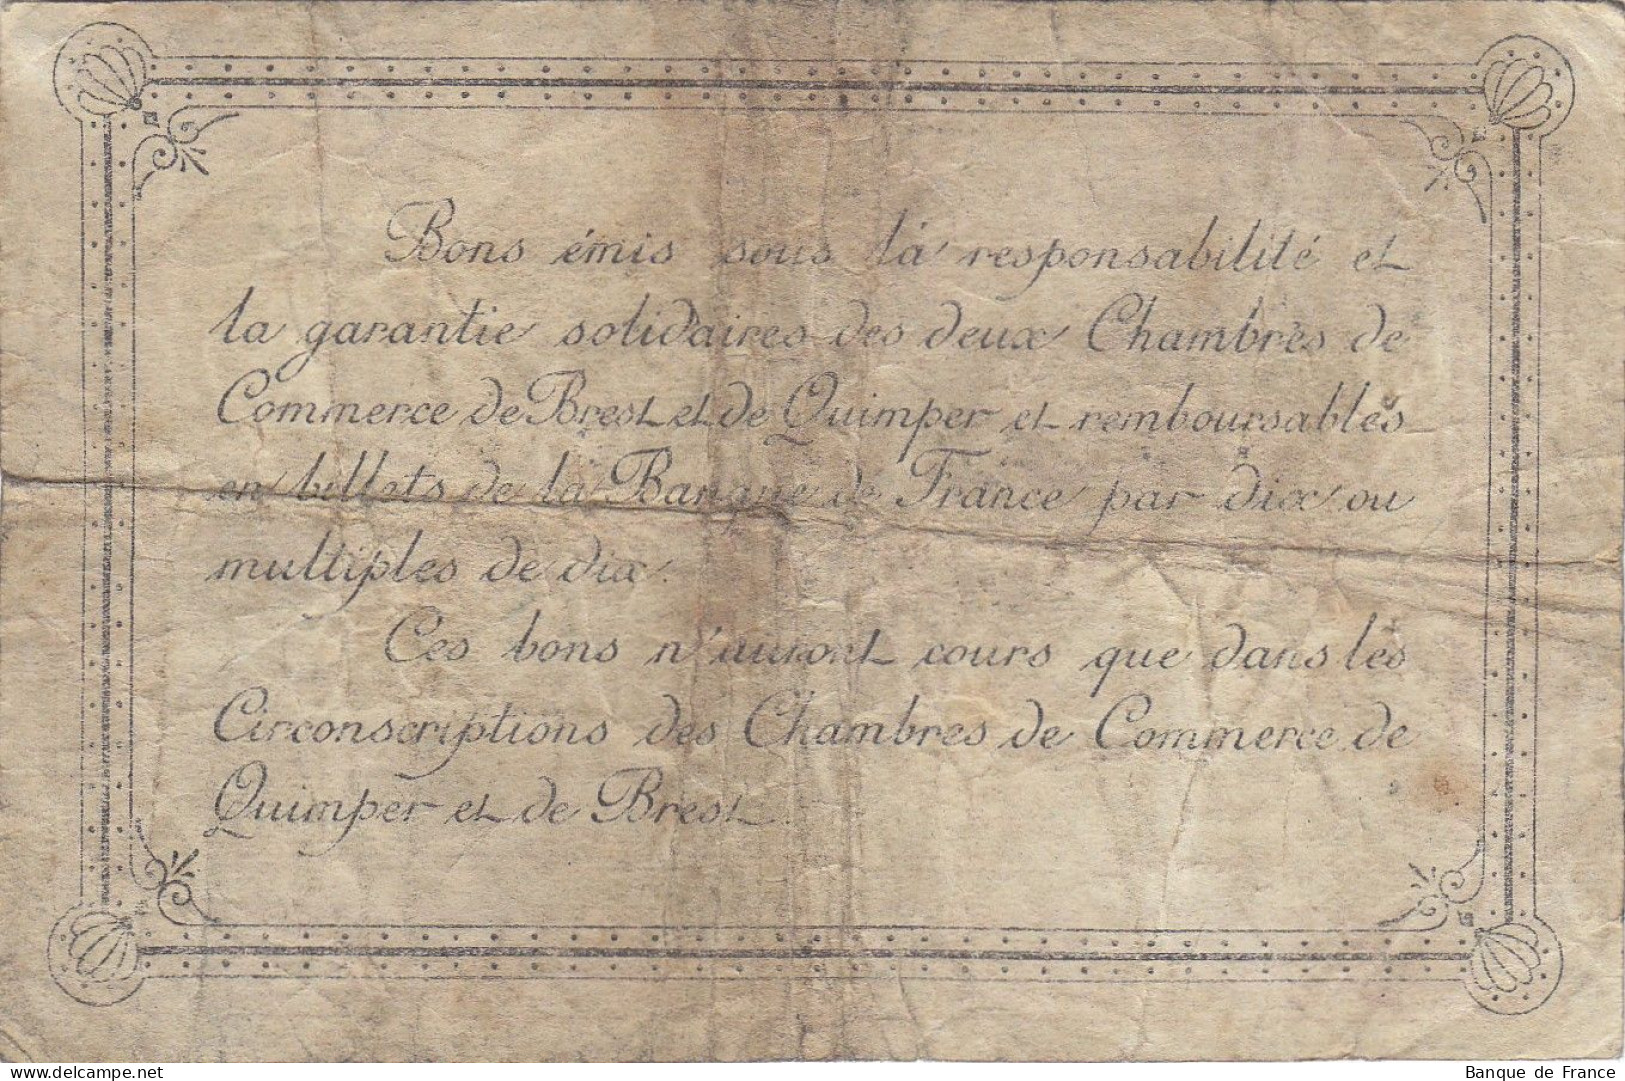 Bons émis sous la responsabilité et
la garantie solidaires des deux Chambres de
Commerce de Brest et de Quimper et remboursables
en billets de la Banque de France par dix ou
multiples de dix.
Ces bons n'auront cours que dans les
Circonscriptions des Chambres de Commerce de
Quimper et de Brest.
delcampe.net
Banque de France